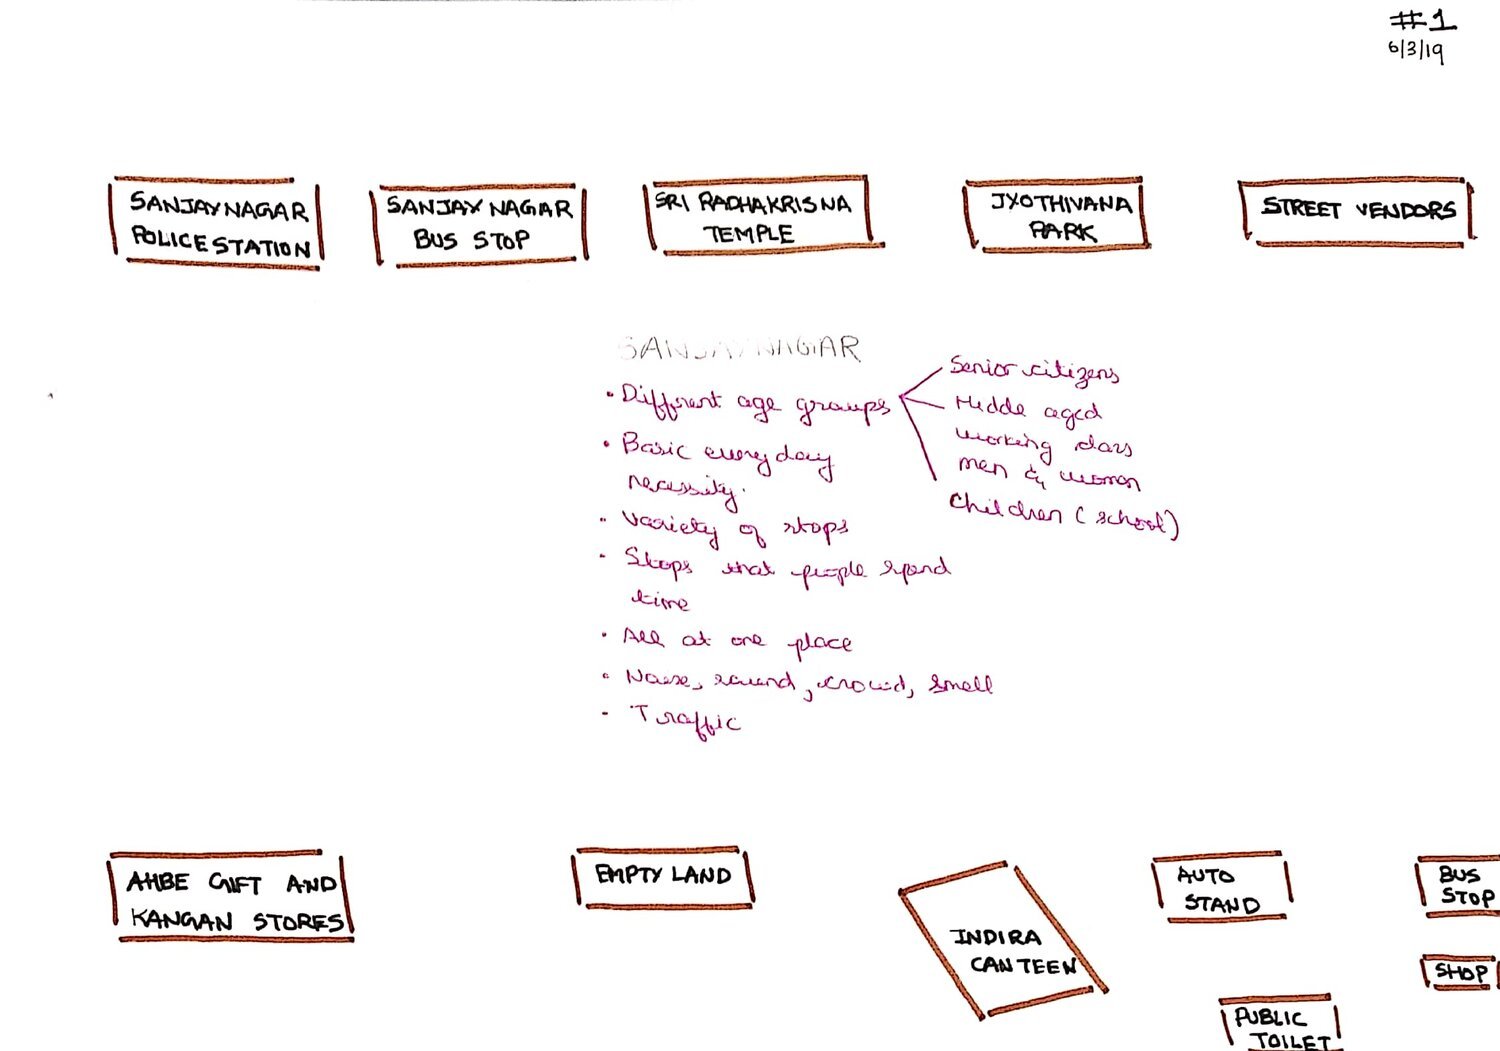 #1
6/3/19
SANJAYNAGAR
POLICE STATION
SANJAY NAGAR
BUS STOP
SRI RADHAKRISNA
TEMPLE
JYOTHIVANA
PARK
STREET VENDORS
SANJAYNAGAR
• Different age groups
Senior citizens
Midde aged
working class
men & women
Children (school)
• Basic everyday
necessity.
• Variety of stops
• Stops that people spend
time
• All at one place
• Noise, sound, crowd, smell
• Traffic
AHBE GIFT AND
KANGAN STORES
EMPTY LAND
INDIRA
CANTEEN
AUTO
STAND
BUS
STOP
SHOP
PUBLIC
TOILET